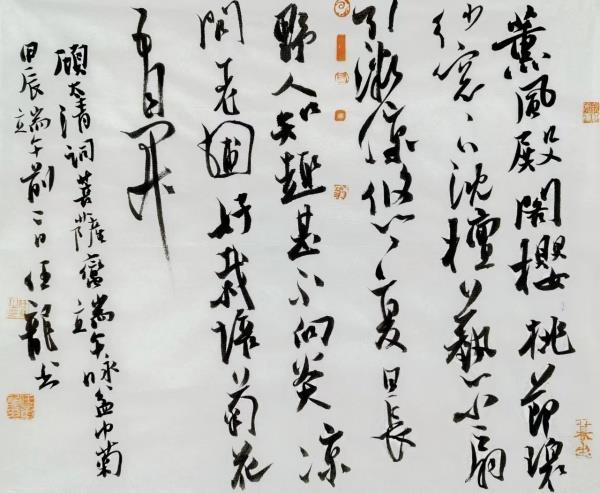 薰風殿閣櫻桃節碧
纱窓下沈檀爇小扇
引微凉悠悠夏日長
野人知趣甚不向炎凉
問老圃好栽培菊花
五月開
顧太清詞菩薩蠻端午咏盆中菊
甲辰端午前一日任龍书